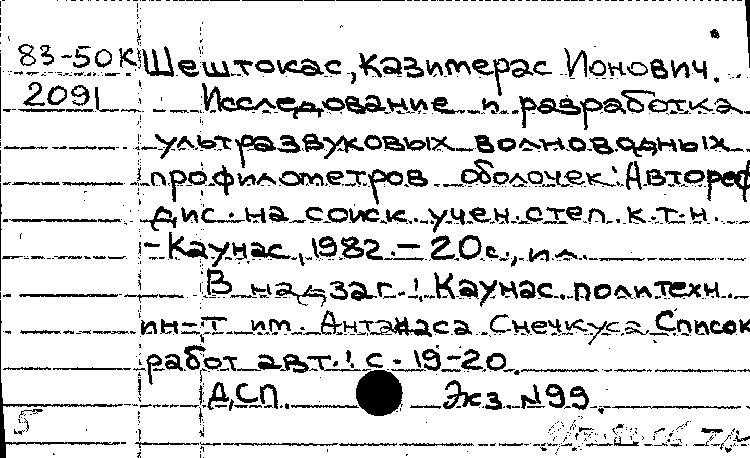 83-50К Шештокас, Казимерас Ионович.
2091 Исследование и разработка
ультразвуковых волноводных
профилометров оболочек: Автореф
дис. на соиск. учен. степ. к.т.н.
- Каунас, 1982. - 20 с., ил.
В надзаг.: Каунас. политехн.
ин-т им. Антанаса Снечкуса. Список
работ авт.: с. 19-20.
ДСП. Экз. N99.
5